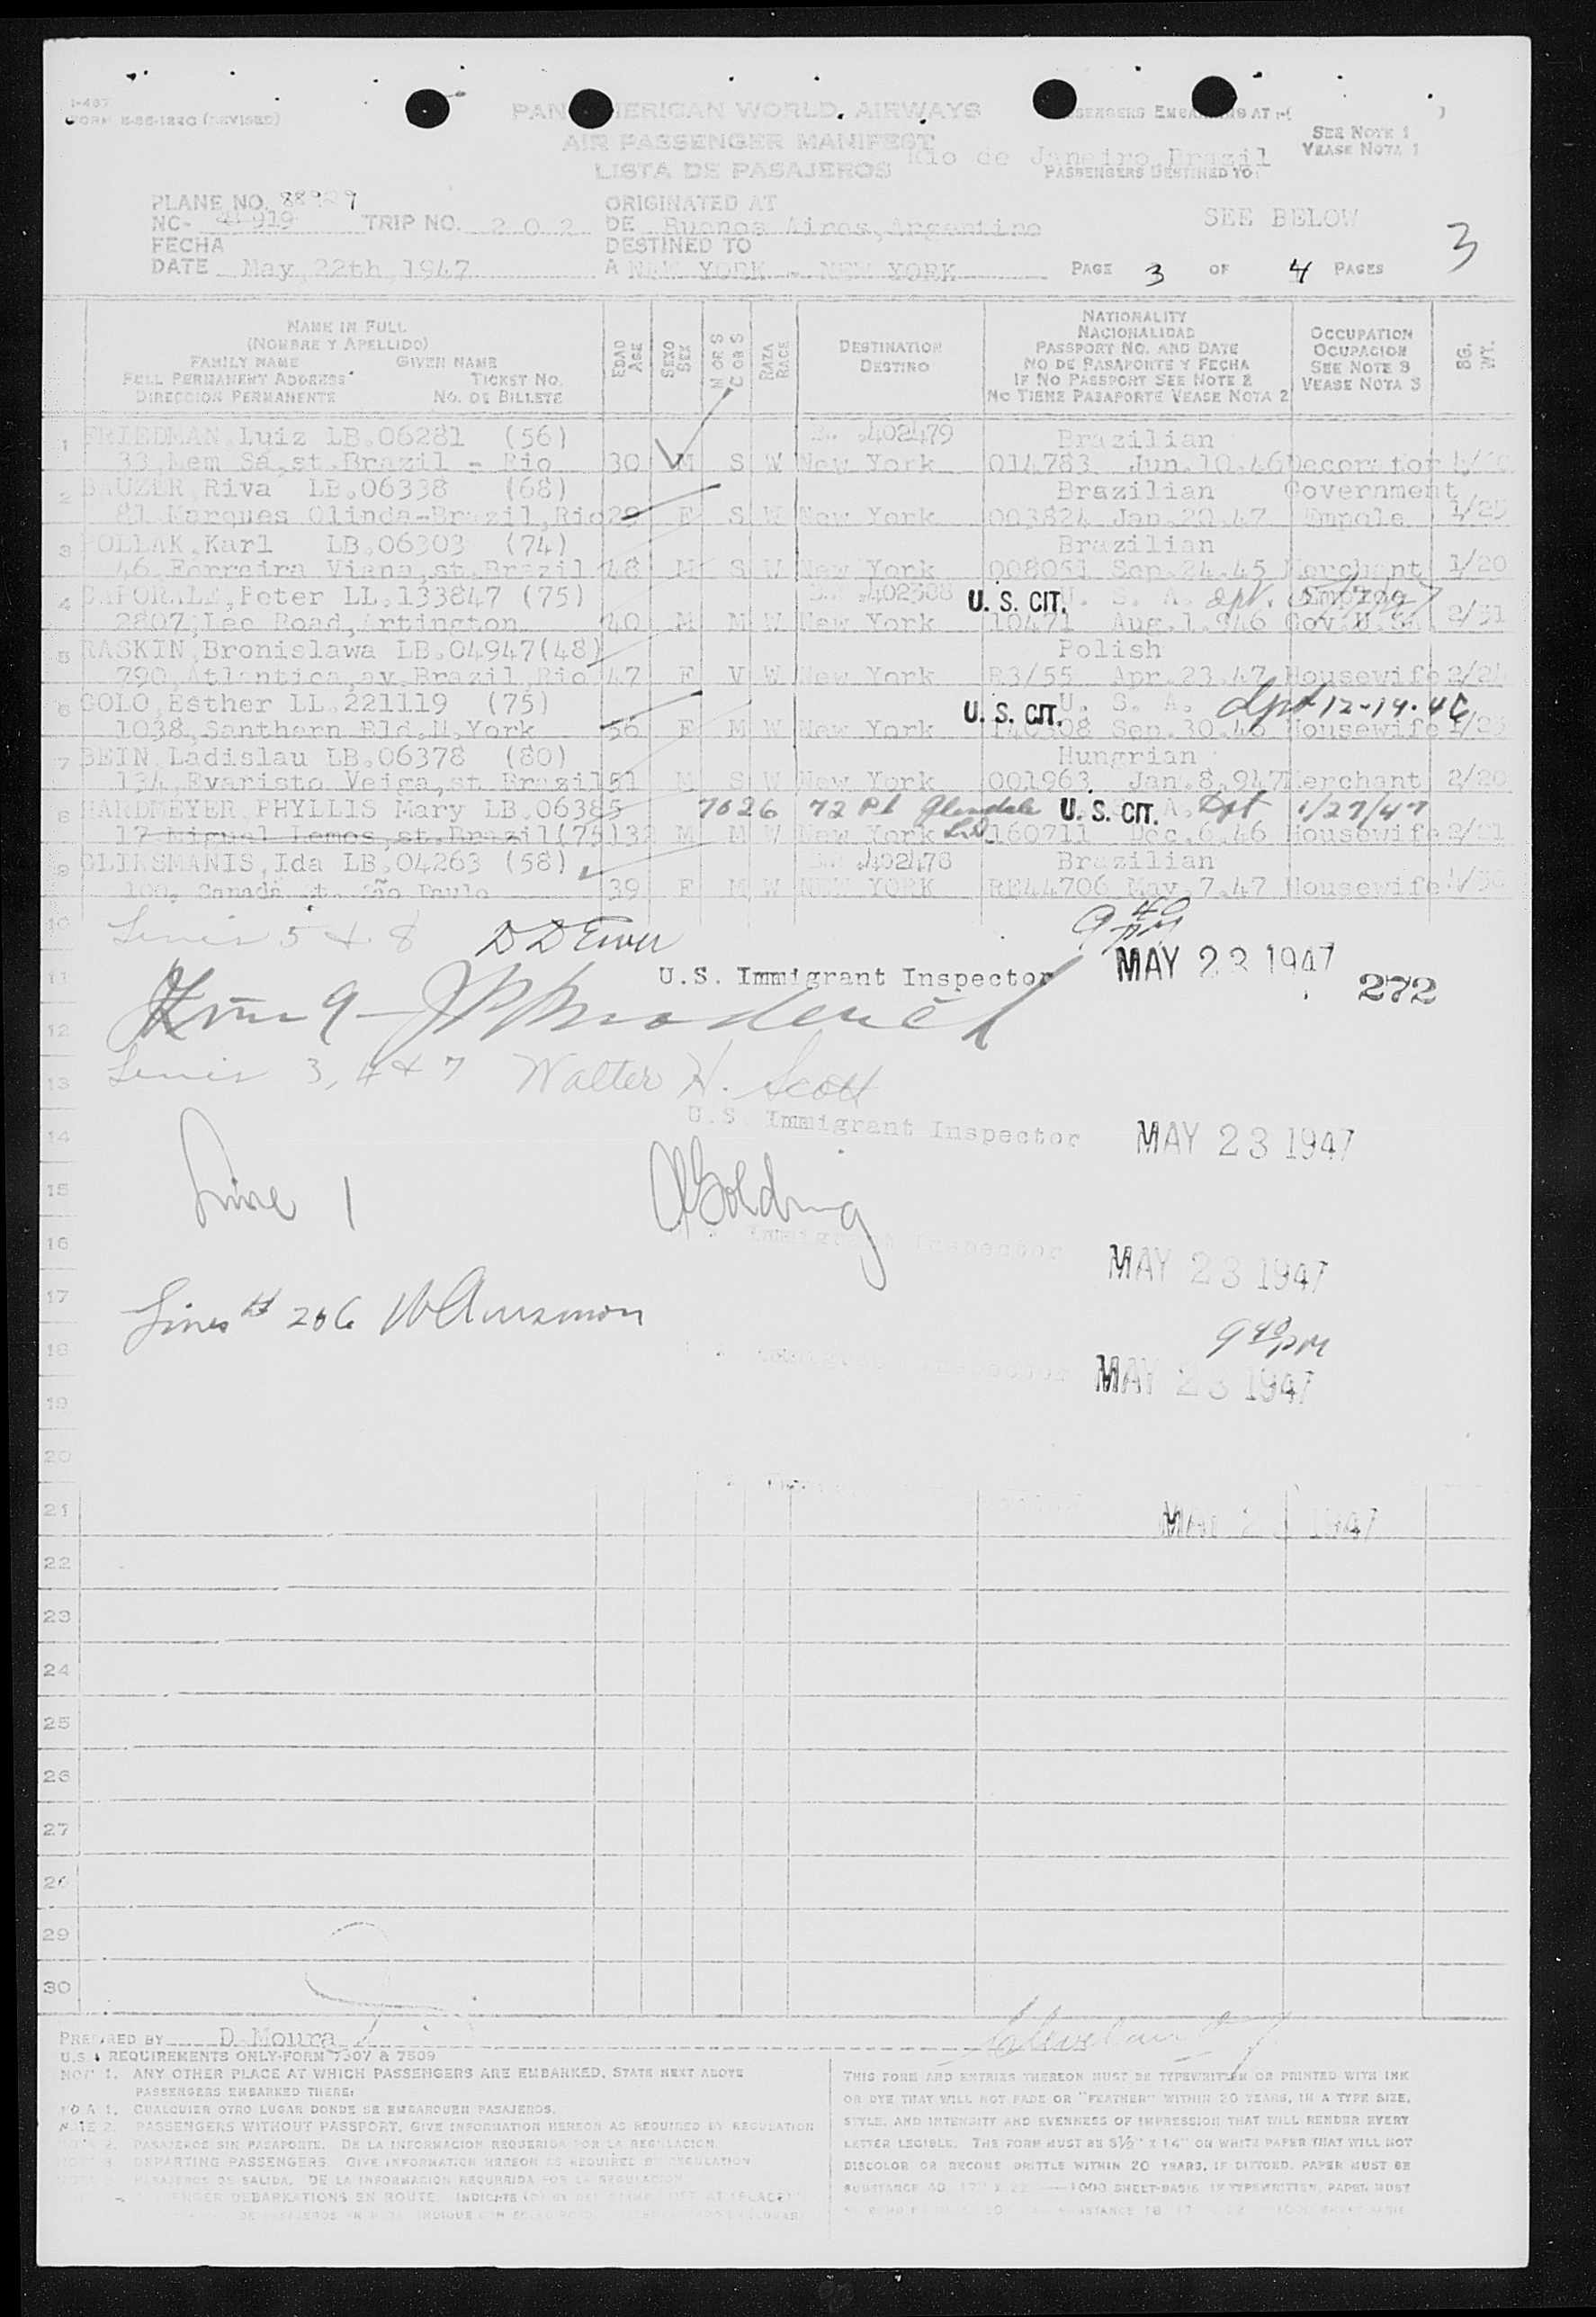 I-487
FORM B-86-1220 (REVISED)
PAN AMERICAN WORLD AIRWAYS
AIR PASSENGER MANIFEST
LISTA DE PASAJEROS
PASSENGERS EMBARKING AT
SEE NOTE 1
VEASE NOTA 1
Rio de Janeiro, Brazil
PASSENGERS DESTINED TO:
SEE BELOW
3
PLANE NO.
NC- 919 TRIP NO. 202
ORIGINATED AT
DE Buenos Aires, Argentine
FECHA
DATE May, 22th, 1947
DESTINED TO
A NEW YORK - NEW YORK
PAGE 3 OF 4 PAGES
NAME IN FULL
(NOMBRE Y APELLIDO)
FAMILY NAME GIVEN NAME
FULL PERMANENT ADDRESS TICKET NO.
DIRECCION PERMANENTE NO. DE BILLETE
EDAD AGE
SEXO SEX
M OR S
C OR S
RAZA RACE
DESTINATION
DESTINO
NATIONALITY
NACIONALIDAD
PASSPORT NO. AND DATE
NO DE PASAPORTE Y FECHA
IF NO PASSPORT SEE NOTE 2
NO TIENE PASAPORTE VEASE NOTA 2
OCCUPATION
OCUPACION
SEE NOTE 3
VEASE NOTA 3
BG. WT.
1 FRIEDMAN, Luiz LB.06281 (56) .402479 Brazilian
33, Mem Sá, st. Brazil - Rio 30 M S W New York 014783 Jun.10.46 Decorator
2 BAUZER, Riva LB.06338 (68) Brazilian Government
81 Marques Olinda-Brazil, Rio 29 F S W New York 003824 Jan.20.47 Empole 1/25
3 POLLAK, Karl LB.06303 (74) Brazilian
46, Ferreira Viana, st. Brazil 48 M S W New York 008051 Sep.24.45 Merchant 1/20
4 CAPORALE, Peter LL.133847 (75) U. S. CIT. U. S. A.
2807, Lee Road, Artington 40 M M W New York 10471 Aug.1.946 Gov.U.SA. 2/31
5 RASKIN, Bronislawa LB.04947(48) Polish
790, Atlantica, av. Brazil, Rio 47 F V W New York R3/55 Apr.23.47 Housewife 2/24
6 GOLO, Esther LL.221119 (75) U. S. CIT. U. S. A. Dpt 12-19-46
1038, Santhern Bld. N. York 56 F M W New York 140308 Sep.30.46 Housewife 1/23
7 BEIN, Ladislau LB.06378 (80) Hungrian
134, Evaristo Veiga, st Brazil 51 M S W New York 001963 Jan.8.947 Merchant 2/20
8 HARDMEYER PHYLLIS Mary LB.06385 7026 72 Pl Glendale U. S. CIT. A. Dpt 1/27/47
17 Miguel Lemos, st. Brazil (75) 32 M M W New York 160711 Dec.6.46 Housewife
9 GLIKSMANIS, Ida LB.04263 (58) .402478 Brazilian
100, Canadá st. São Paulo 39 F M W NEW YORK RE44706 May.7.47 Housewife
10 Lines 5 & 8
9 40 PM
11 U.S. Immigrant Inspector MAY 23 1947 272
12
13 Lines 3, 4 & 7 Walter H. Scott
14 U.S. Immigrant Inspector MAY 23 1947
15 Line 1 Golding
16 Immigrant Inspector MAY 23 1947
17 Lines
9 40 PM
18 MAY 23 1947
19
20
21 1947
22
23
24
25
26
27
28
29
30
PREPARED BY D. Moura
U.S. REQUIREMENTS ONLY-FORM 7507 & 7509
NOTE 1. ANY OTHER PLACE AT WHICH PASSENGERS ARE EMBARKED, STATE NEXT ABOVE
PASSENGERS EMBARKED THERE:
NOTA 1. CUALQUIER OTRO LUGAR DONDE SE EMBARQUEN PASAJEROS.
NOTE 2. PASSENGERS WITHOUT PASSPORT. GIVE INFORMATION HEREON AS REQUIRED BY REGULATION
NOTA 2. PASAJEROS SIN PASAPORTE. DE LA INFORMACION REQUERIDA POR LA REGULACION.
NOTE 3. DEPARTING PASSENGERS. GIVE INFORMATION HEREON AS REQUIRED BY REGULATION
NOTA 3. PASAJEROS DE SALIDA. DE LA INFORMACION REQUERIDA POR LA REGULACION
DEBARKATIONS EN ROUTE.
THIS FORM AND ENTRIES THEREON MUST BE TYPEWRITTEN OR PRINTED WITH INK
OR DYE THAT WILL NOT FADE OR "FEATHER" WITHIN 20 YEARS, IN A TYPE SIZE,
STYLE, AND INTENSITY AND EVENNESS OF IMPRESSION THAT WILL RENDER EVERY
LETTER LEGIBLE. THE FORM MUST BE 8½" X 14" ON WHITE PAPER THAT WILL NOT
DISCOLOR OR BECOME BRITTLE WITHIN 20 YEARS. IF DITTOED, PAPER MUST BE
SUBSTANCE 40, 17" X 22" —1000 SHEET-BASIS. IF TYPEWRITTEN, PAPER MUST